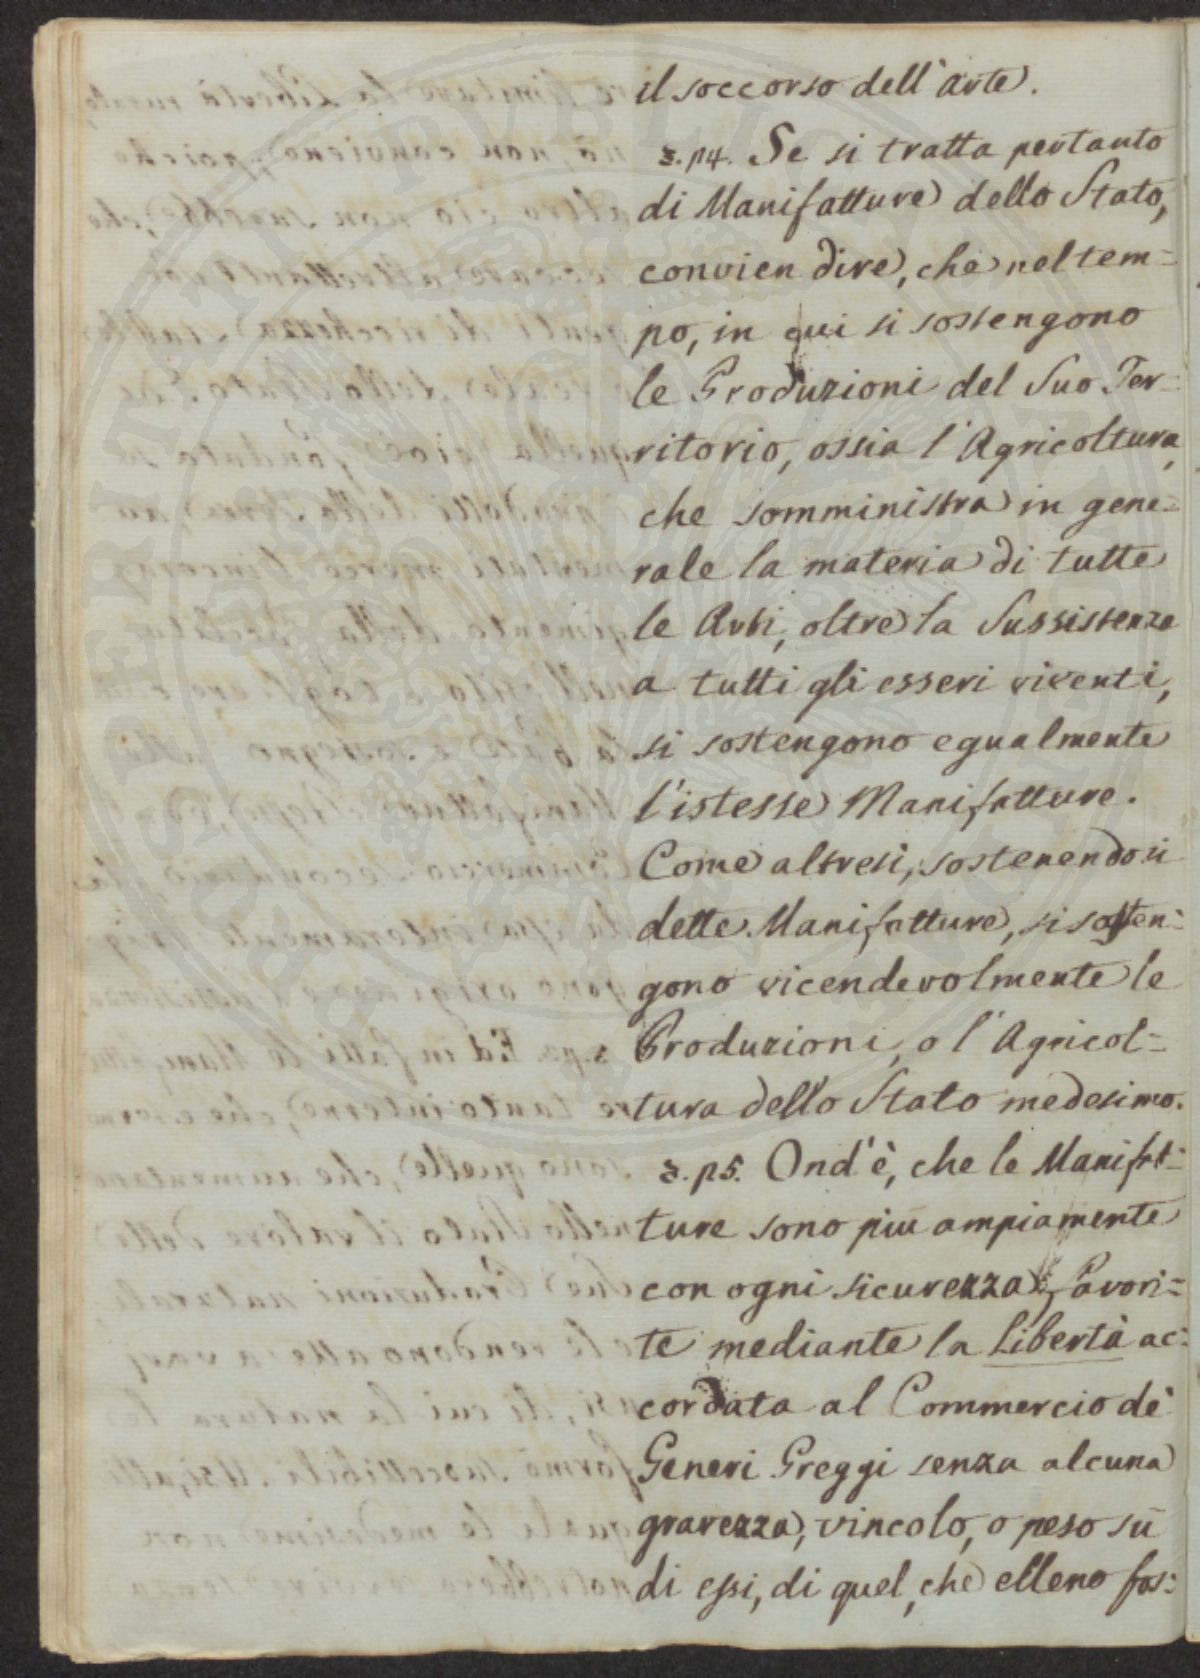 il soccorso dell'arte.
§. 14. Se si tratta pertanto
di Manifatture dello Stato,
convien dire, che nel tem=
po, in cui si sostengono
le Produzioni del Suo Ter=
ritorio, ossia l'Agricoltura,
che somministra in gene=
rale la materia di tutte
le Arti, oltre la Sussistenza
a tutti gli esseri viventi,
si sostengono egualmente
l'istesse Manifatture.
Come altresì, sostenendosi
dette Manifatture, si sosten=
gono vicendevolmente le
Produzioni, o l'Agricol=
tura dello Stato medesimo.
§. 15. Ond'è, che le Manifat=
ture sono più ampiamente
con ogni sicurezza favori=
te mediante la Libertà ac=
cordata al Commercio de'
Generi Greggi senza alcuna
gravezza, vincolo, o peso sù
di essi, di quel, che elleno fos=